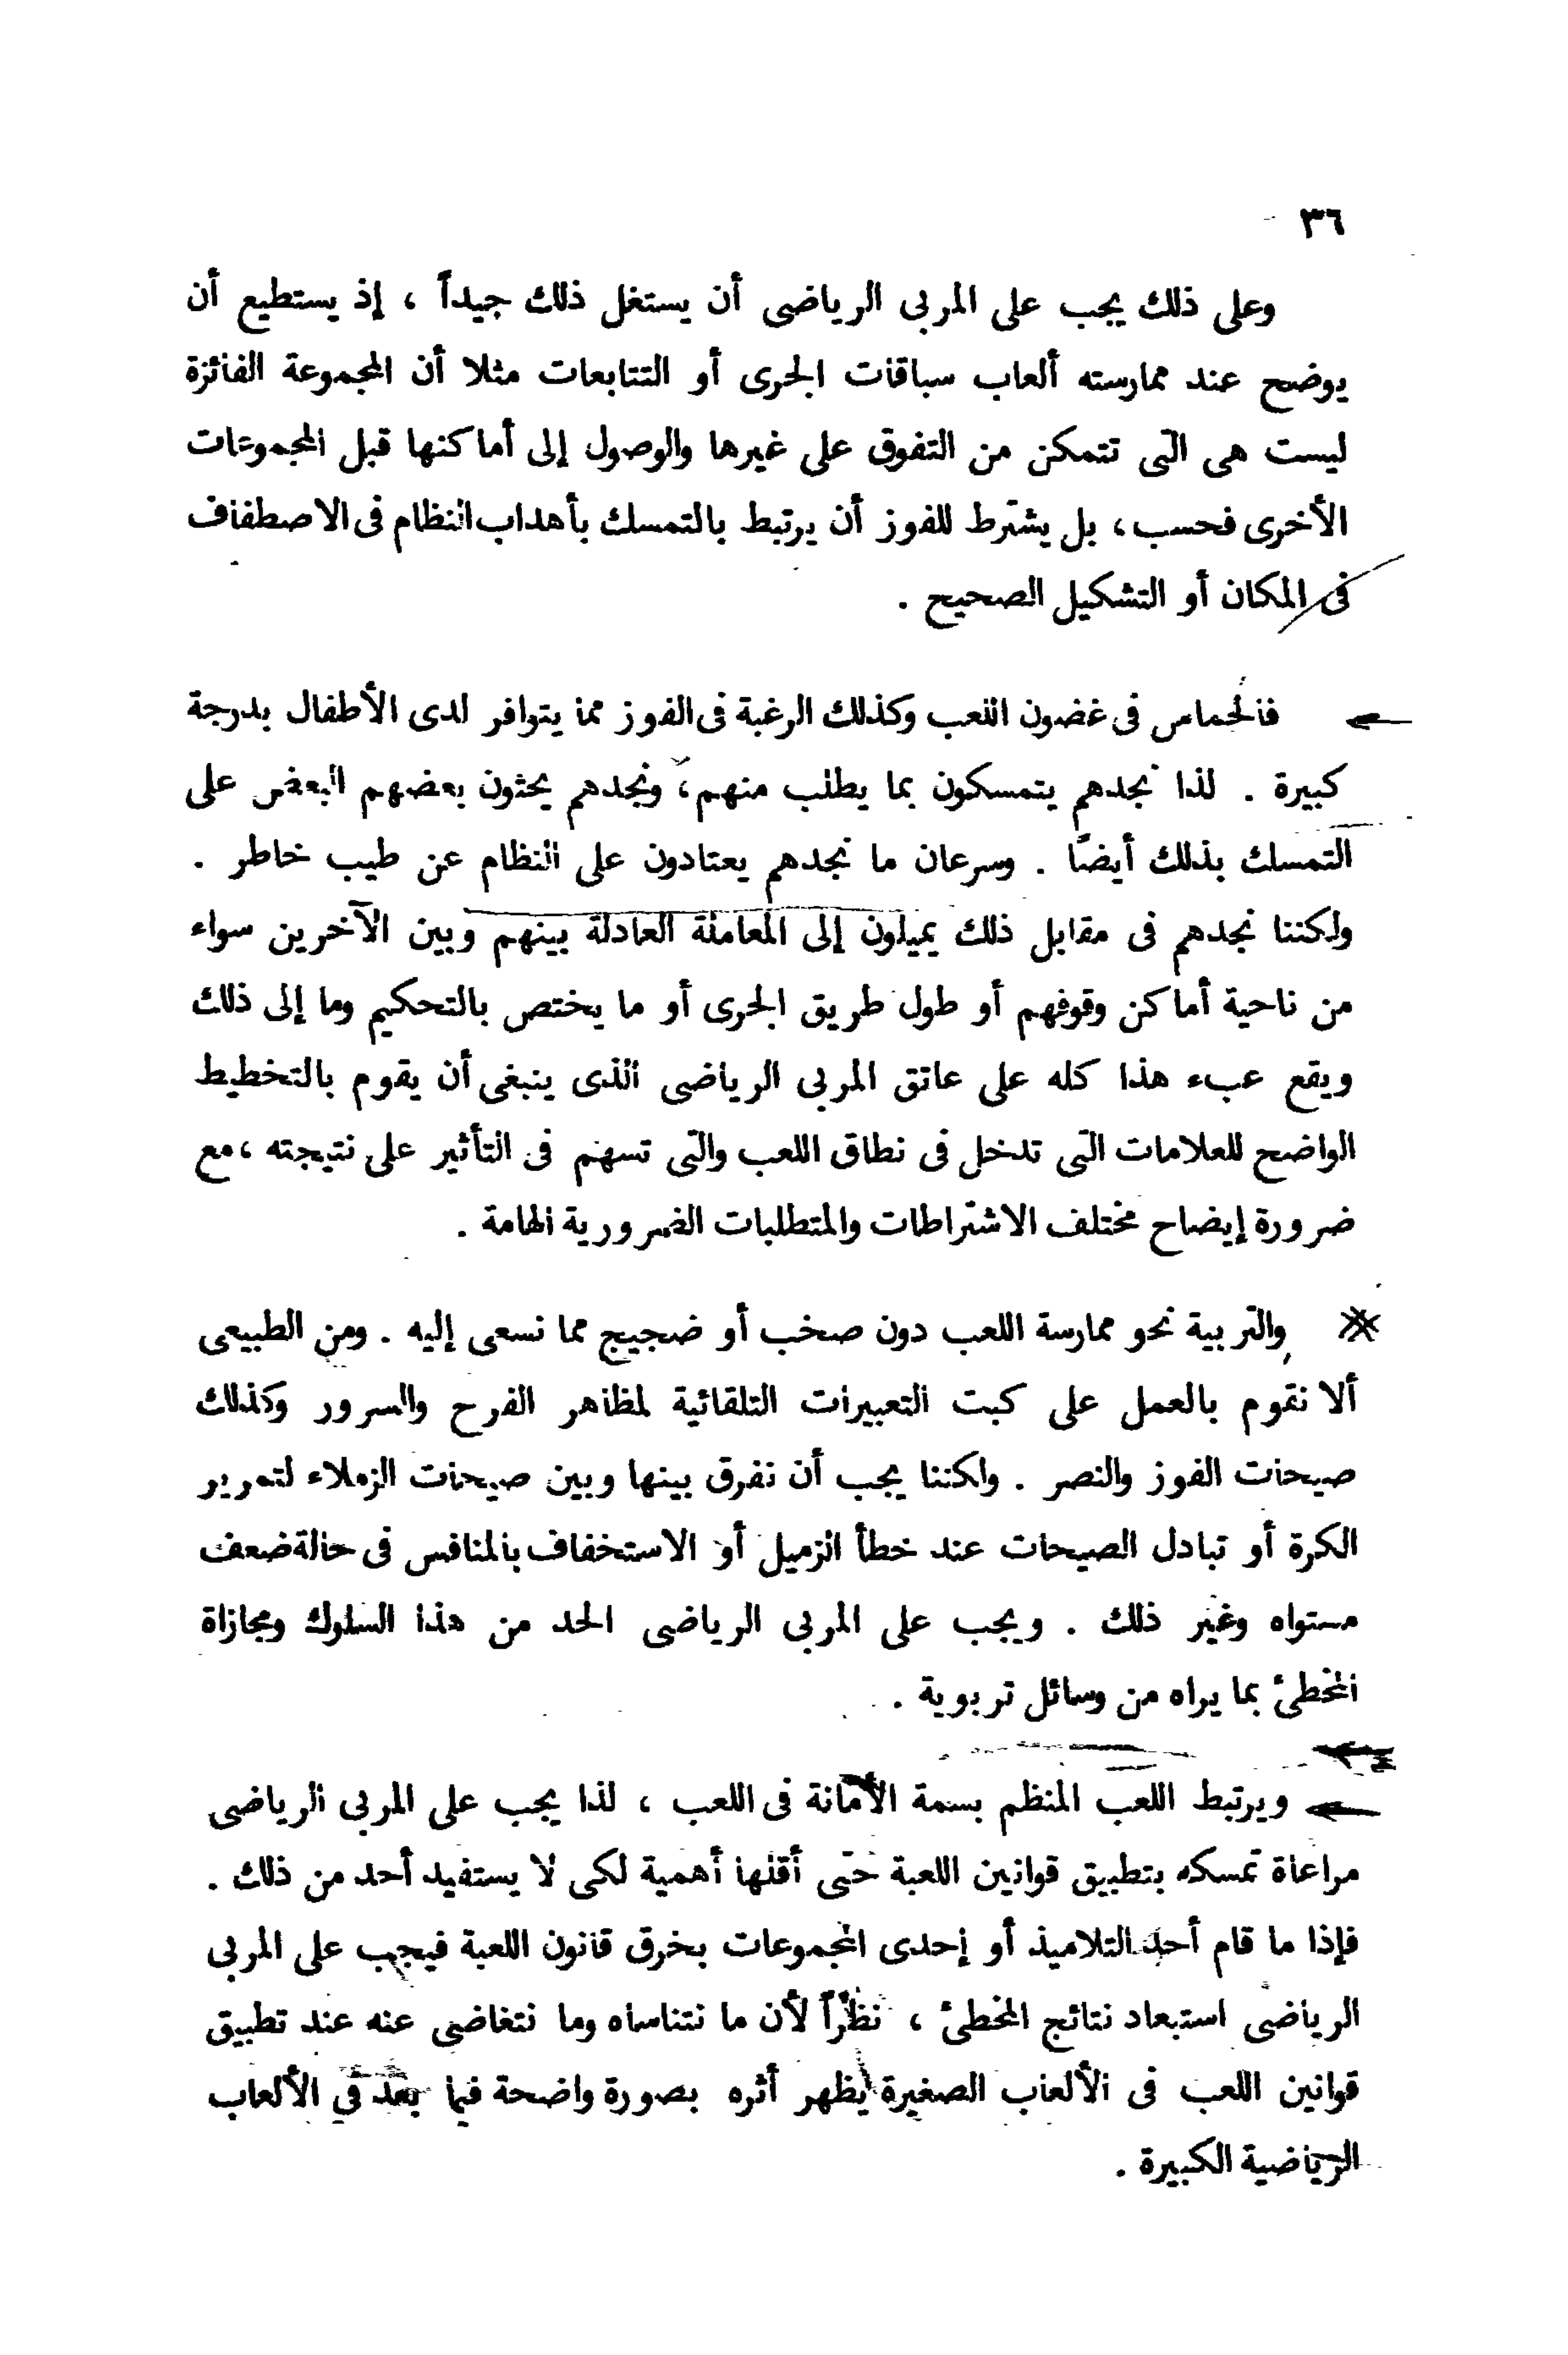 ٣٦
وعلى ذلك يجب على المربى الرياضى أن يستغل ذلك جيداً ، إذ يستطيع أن
يوضح عند ممارسته ألعاب سباقات الجرى أو التتابعات مثلا أن المجموعة الفائزة
ليست هى التى تتمكن من التفوق على غيرها والوصول إلى أماكنها قبل المجموعات
الأخرى فحسب ، بل يشترط للفوز أن يرتبط بالتمسك بأهداب النظام فى الاصطفاف
فى المكان أو التشكيل الصحيح .
فالحماس فى غضون اللعب وكذلك الرغبة فى الفوز مما يتوافر لدى الأطفال بدرجة
كبيرة . لذا نجدهم يتمسكون بما يطلب منهم ، ونجدهم يحثون بعضهم البعض على
التمسك بذلك أيضاً . وسرعان ما نجدهم يعتادون على النظام عن طيب خاطر .
ولكننا نجدهم فى مقابل ذلك يميلون إلى المعاملة العادلة بينهم وبين الآخرين سواء
من ناحية أماكن وقوفهم أو طول طريق الجرى أو ما يختص بالتحكيم وما إلى ذلك
ويقع عبء هذا كله على عاتق المربى الرياضى الذى ينبغى أن يقوم بالتخطيط
الواضح للعلامات التى تدخل فى نطاق اللعب والتى تسهم فى التأثير على نتيجته ، مع
ضرورة إيضاح مختلف الاشتراطات والمتطلبات الضرورية الهامة .
والتربية نحو ممارسة اللعب دون صخب أو ضجيج مما نسعى إليه . ومن الطبيعى
ألا نقوم بالعمل على كبت التعبيرات التلقائية لمظاهر الفرح والسرور وكذلك
صيحات الفوز والنصر . ولكننا يجب أن نفرق بينها وبين صيحات الزملاء لتمرير
الكرة أو تبادل الصيحات عند خطأ الزميل أو الاستخفاف بالمنافس فى حالة ضعف
مستواه وغير ذلك . ويجب على المربى الرياضى الحد من هذا السلوك ومجازاة
المخطئ بما يراه من وسائل تربوية .
ويرتبط اللعب المنظم بسمة الأمانة فى اللعب ، لذا يجب على المربى الرياضى
مراعاة تمسكه بتطبيق قوانين اللعبة حتى أقلها أهمية لكى لا يستفيد أحد من ذلك .
فإذا ما قام أحد التلاميذ أو إحدى المجموعات بخرق قانون اللعبة فيجب على المربى
الرياضى استبعاد نتائج المخطئ ، نظراً لأن ما نتناساه وما نتغاضى عنه عند تطبيق
قوانين اللعب فى الألعاب الصغيرة يظهر أثره بصورة واضحة فيما بعد فى الألعاب
الرياضية الكبيرة .